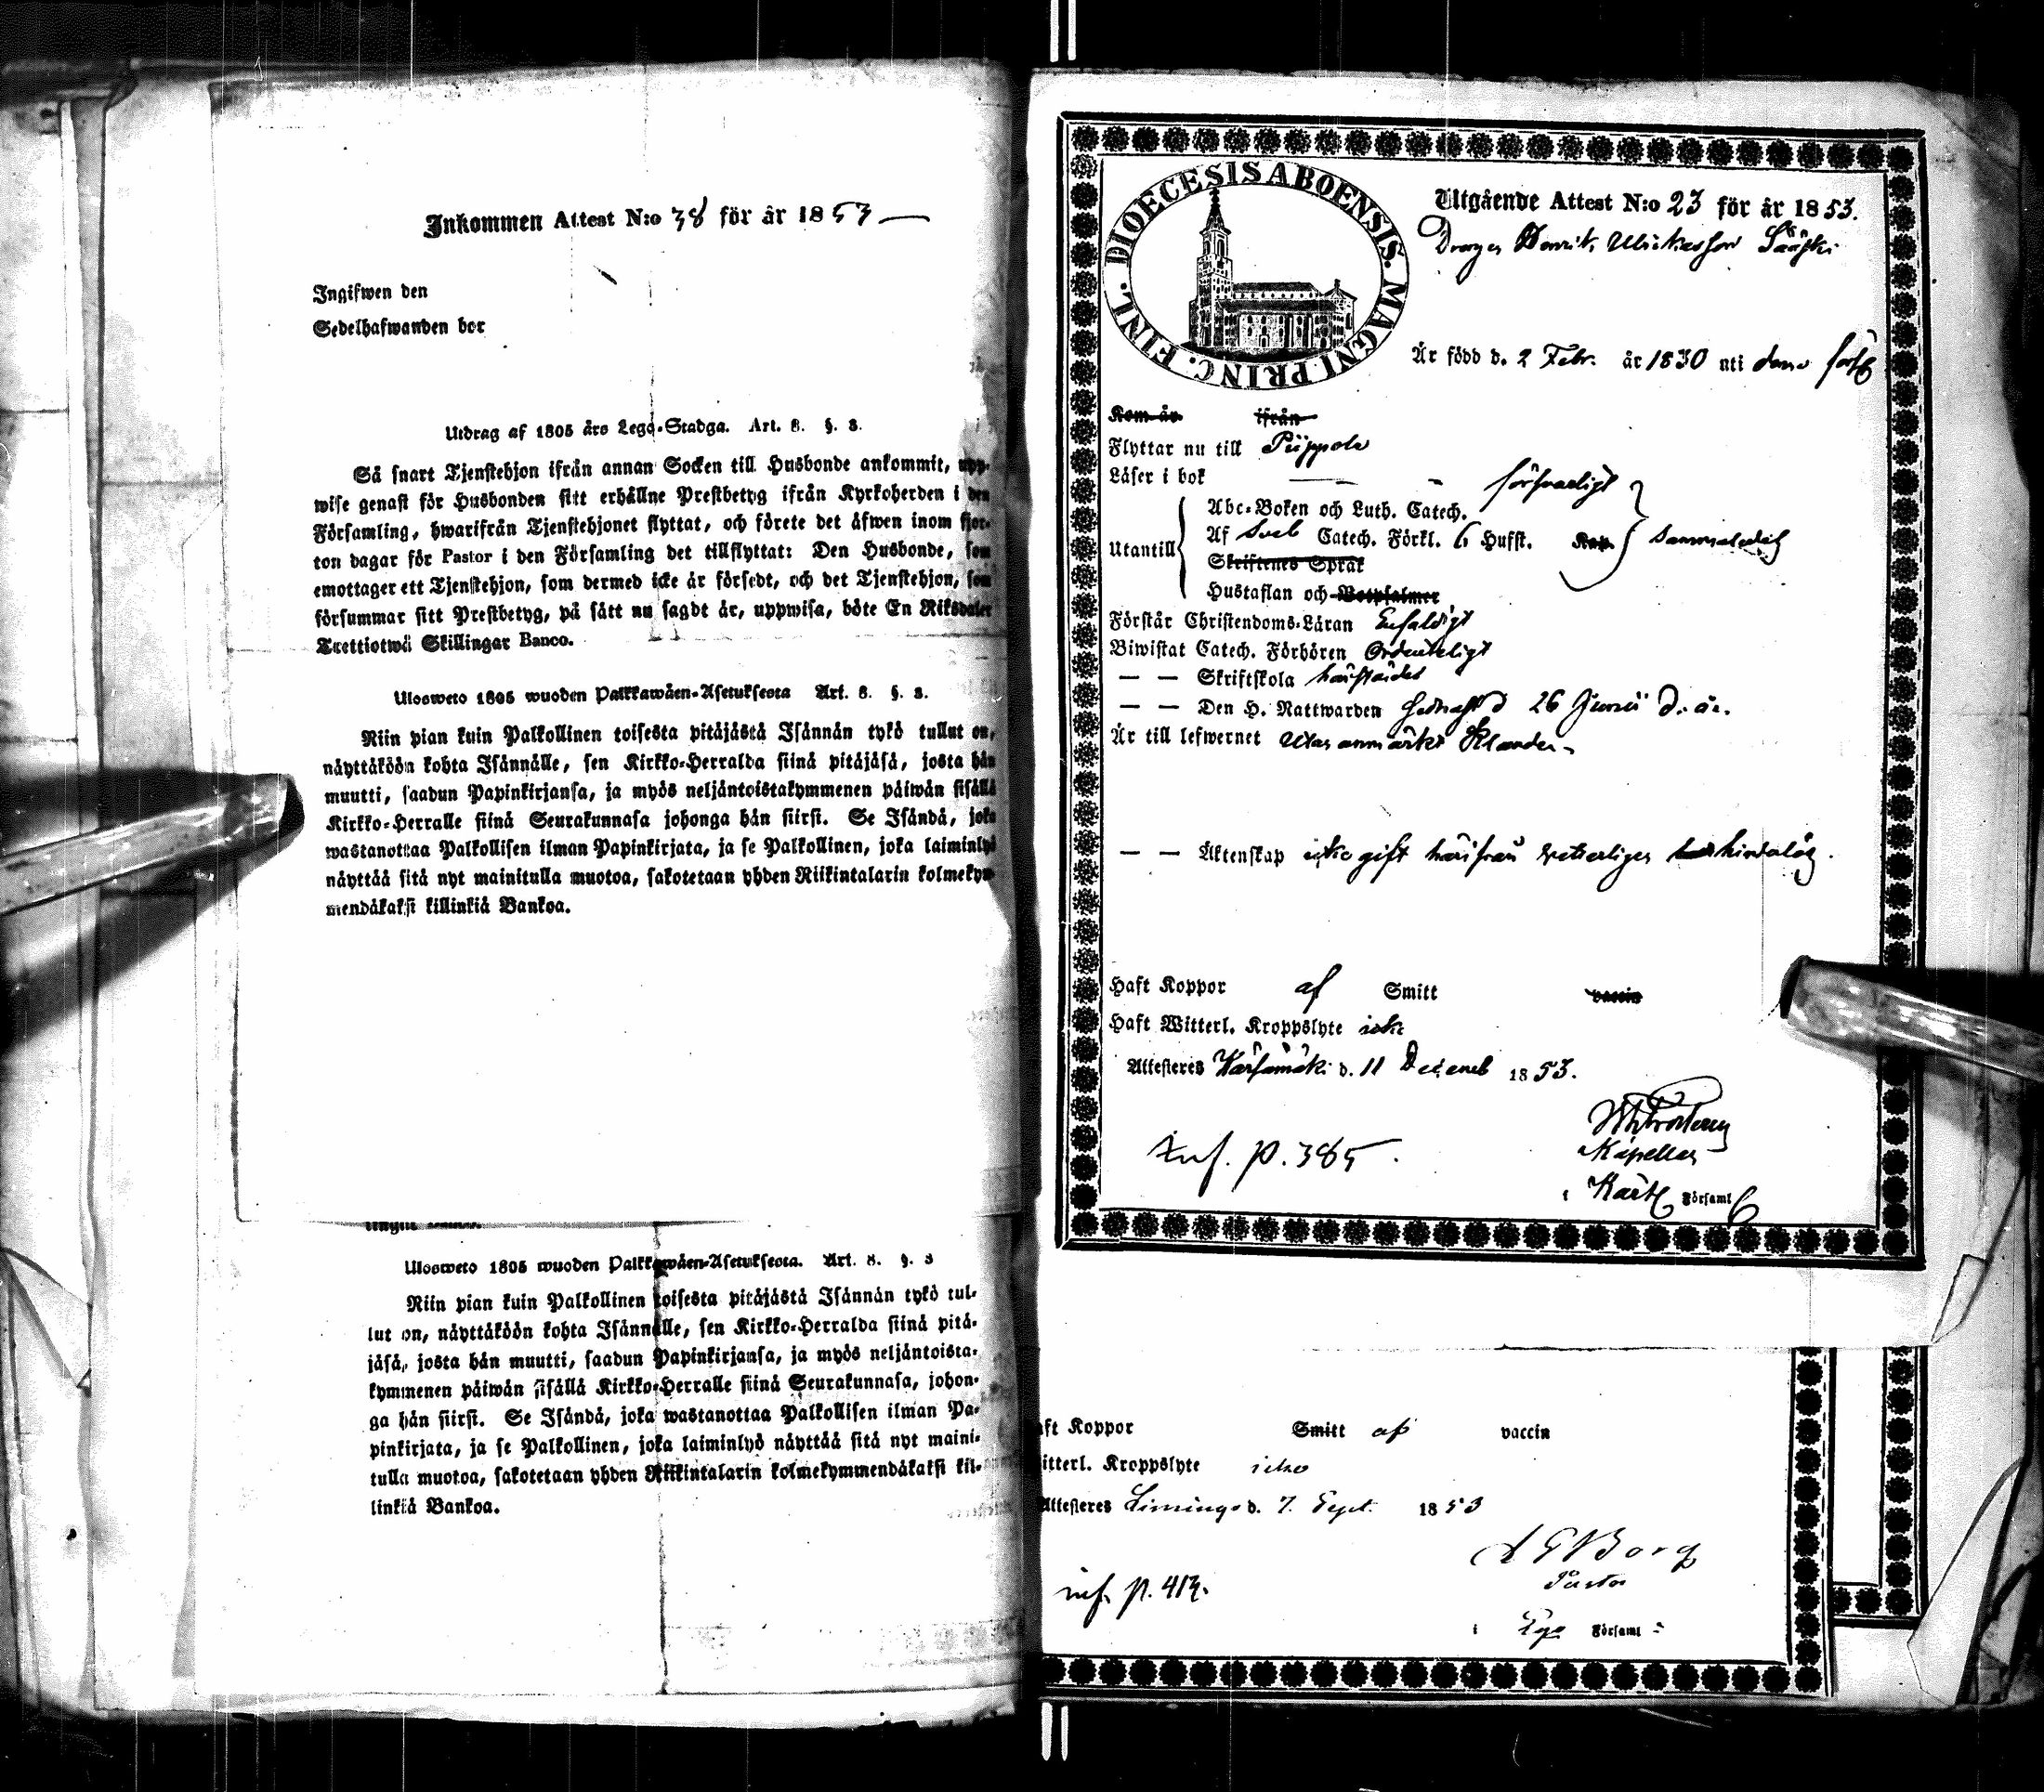 Inkommen Attest N:o 38 för år 1853
Ingifwen den
Sedelhafwanden bor
Utdrag af 1805 års Lego-Stadga. Art. 8. §. 3.
Så snart Tjenstehjon ifrån annan Socken till Husbonde ankommit, upp-
wise genast för Husbonden sitt erhållne Prestbetyg ifrån Kyrkoherden i den
Församling, hwarifrån Tjenstehjonet flyttat, och förete det äfwen inom fjor-
ton dagar för Pastor i den Församling det tillflyttat: Den Husbonde, som
emottager ett Tjenstehjon, som dermed icke är försedt, och det Tjenstehjon, som
försummar sitt Prestbetyg, på sätt nu sagdt är, uppwisa, böte En Riksdaler
Trettiotwå Skillingar Banco.
Ulosweto 1805 wuoden Palkkawäen-Asetuksesta Art. 8. §. 3.
Niin pian kuin Palkollinen toisesta pitäjästä Isännän tykö tullut on,
näyttäköön kohta Isännälle, sen Kirkko-Herralda siinä pitäjäsä, josta hän
muutti, saadun Papinkirjansa, ja myös neljäntoistakymmenen päiwän sisällä
Kirkko-Herralle siinä Seurakunnasa johonga hän siirsi. Se Isändä, joka
wastanottaa Palkollisen ilman Papinkirjata, ja se Palkollinen, joka laiminlyö
näyttää sitä nyt mainitulla muotoa, sakotetaan yhden Riikintalarin kolmekym-
mendäkaksi killinkiä Bankoa.
Ulosweto 1805 wuoden Palkkawäen-Asetuksesta. Art. 8. §. 3
Niin pian kuin Palkollinen toisesta pitäjästä Isännän tykö tul-
lut on, näyttäköön kohta Isännälle, sen Kirkko-Herralda siinä pitä-
jäsä, josta hän muutti, saadun Papinkirjansa, ja myös neljäntoista-
kymmenen päiwän sisällä Kirkko-Herralle siinä Seurakunnasa, johon-
ga hän siirsi. Se Isändä, joka wastanottaa Palkollisen ilman Pa-
pinkirjata, ja se Palkollinen, joka laiminlyö näyttää sitä nyt maini-
tulla muotoa, sakotetaan yhden Riikintalarin kolmekymmendäkaksi kil-
linkiä Bankoa.
DIOECESIS ABOENSIS. MAGNI PRINC. FINL.
Utgående Attest N:o 23 för år 1853.
Henrik
Är född d. 2 Febr. år 1830 uti
Kom år ifrån
Flyttar nu till Piippola
Läser i bok försvarligt
Utantill
Abc-Boken och Luth. Catech.
Af Sveb Catech. Förkl. 6 Hufst. Kap.
Skriftenes Språk
Hustaflan och Botpsalmer
Förstår Christendoms-Läran Enfaldigt
Biwistat Catech. Förhören Ordenteligt
— — Skriftskola
— — Den H. Nattwarden 26 Junii d. år.
Är till lefwernet utan anmärkt klander
— — Äktenskap icke gift härifrån
Haft Koppor af Smitt vaccin
Haft Witterl. Kroppslyte icke
Attesteres Kärsämäki d. 11 Decemb 1853.
Inf. p. 385.
Kapellan
i Församl
aft Koppor Smitt af vaccin
itterl. Kroppslyte icke
Attesteres Limingo d. 7. Sept. 1853
A G Borg
Pastor
inf. p. 413.
i Församl